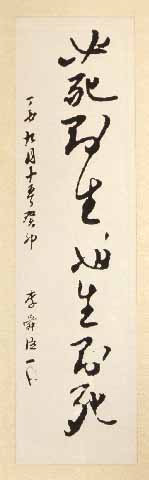 必死則生必生則死
丁酉九月十五日癸卯 李舜臣